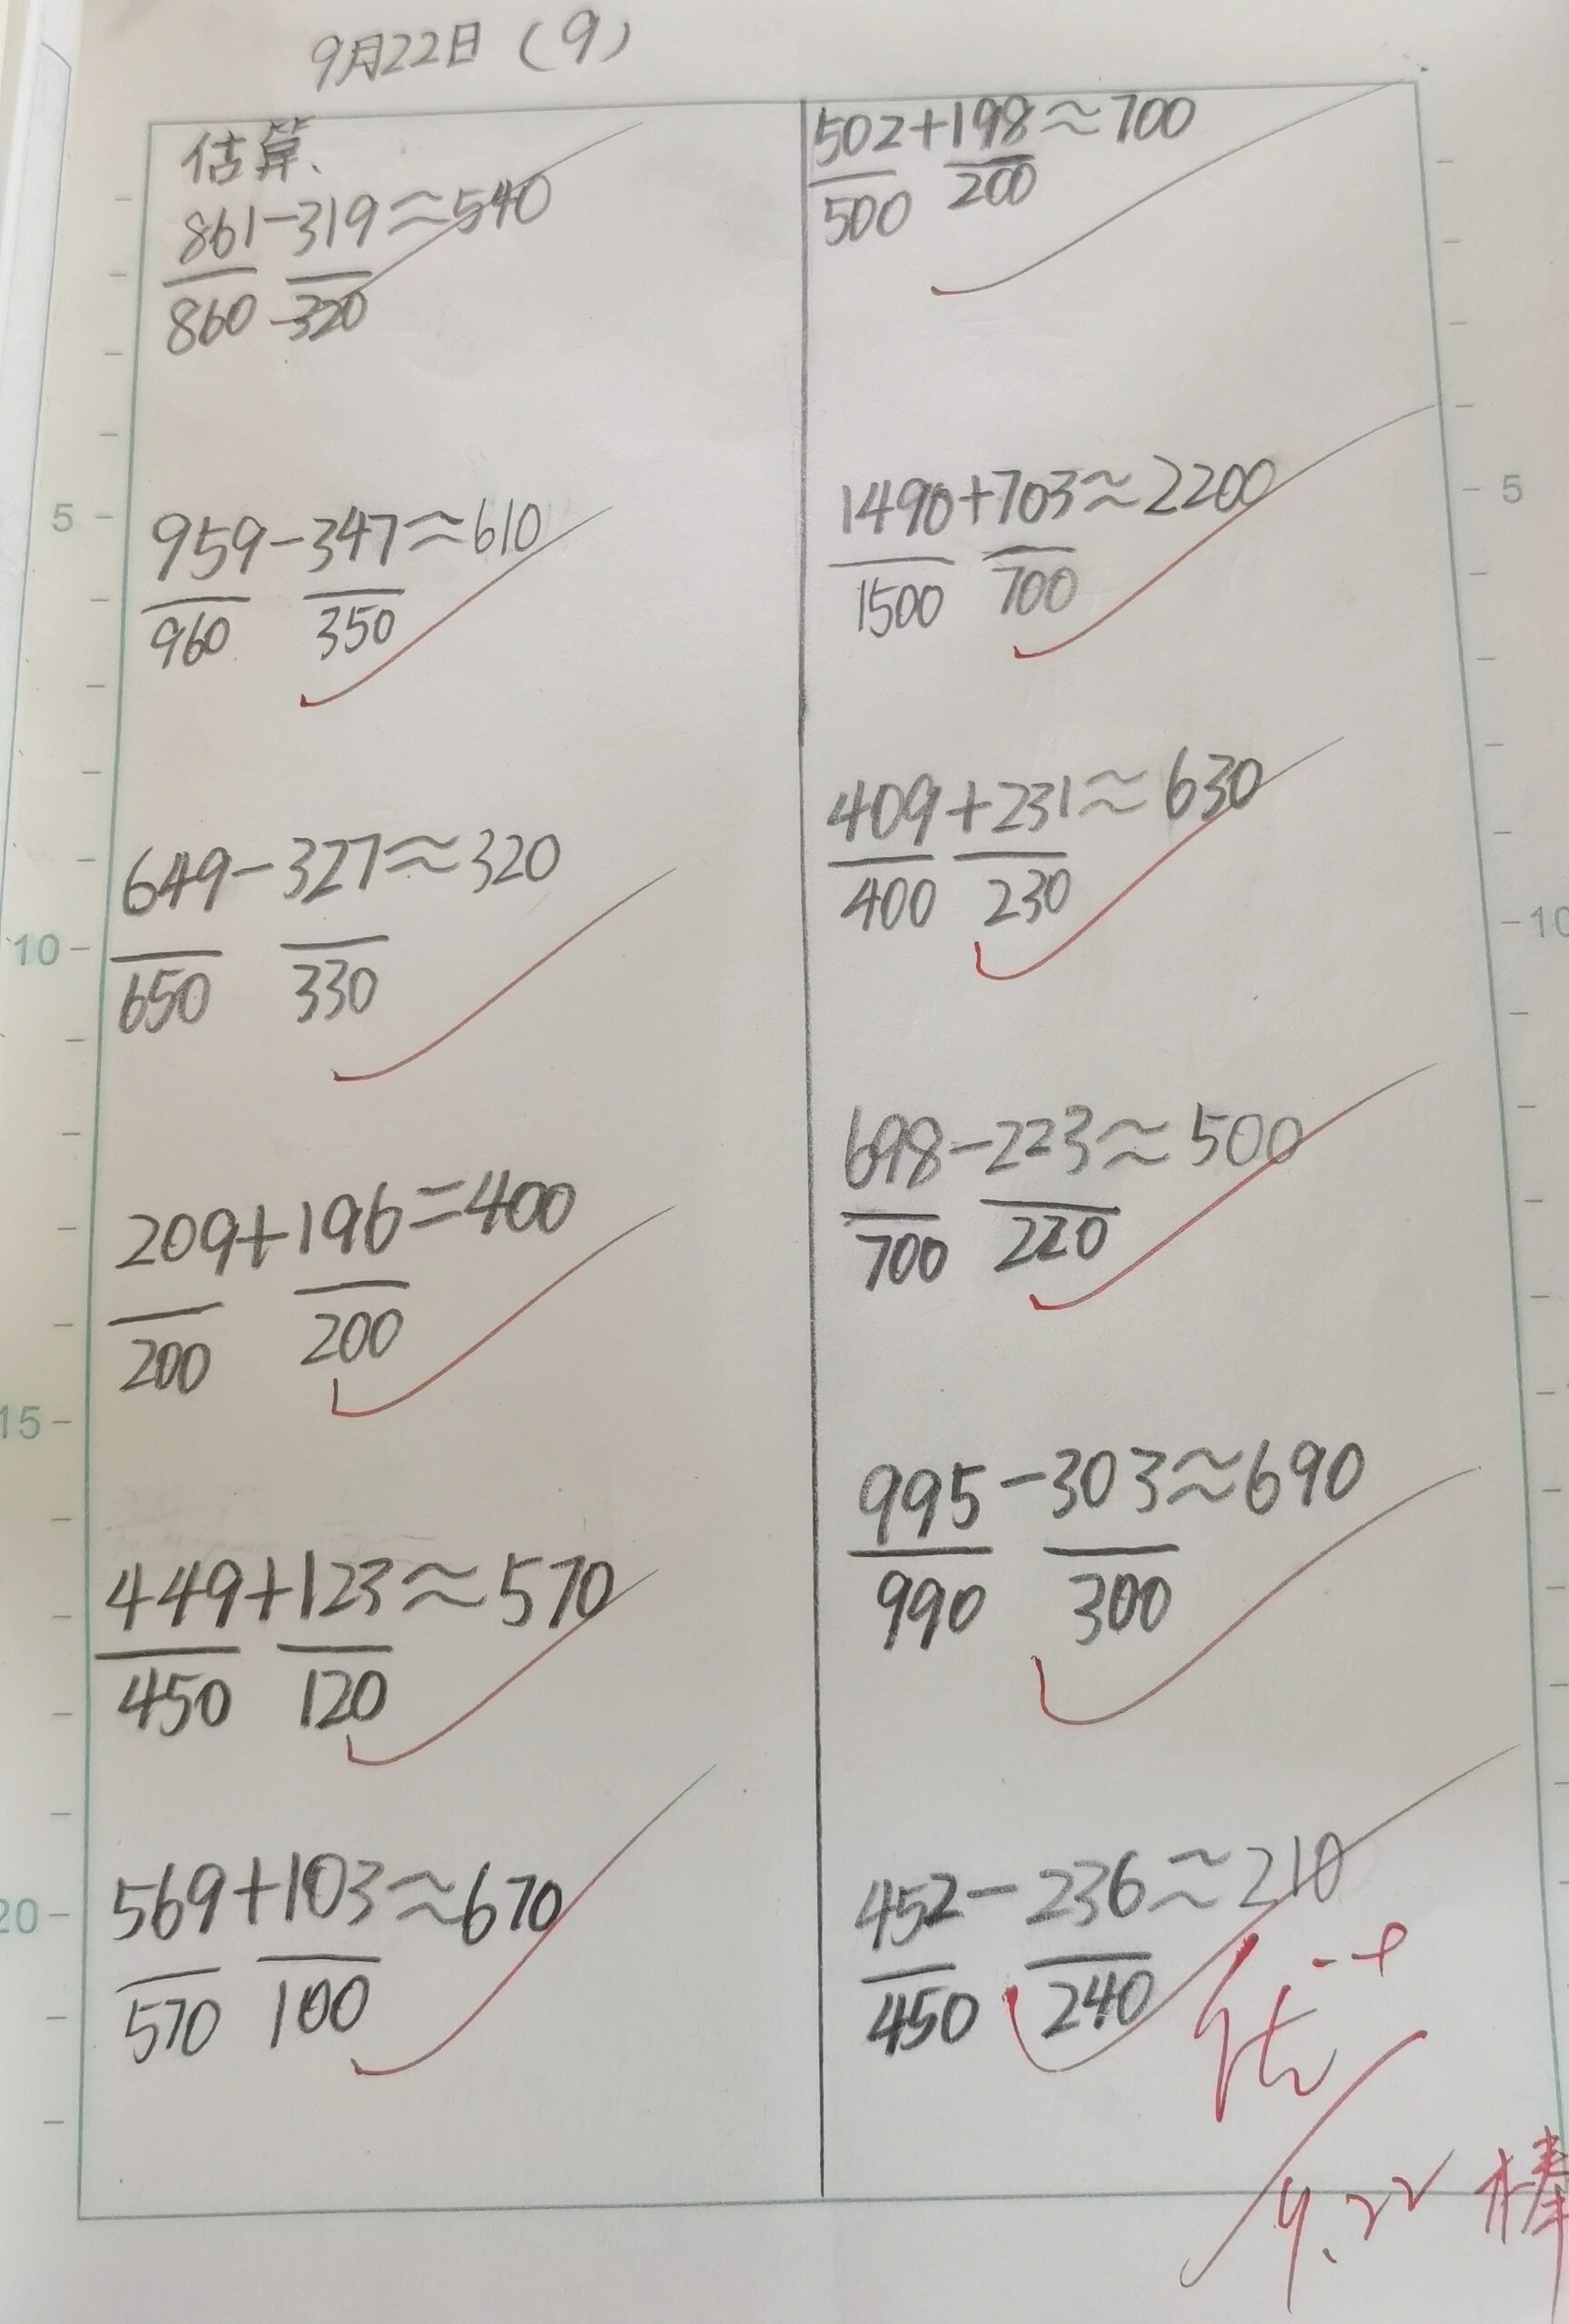 9月22日（9）
估算、
861-319≈540
860 320
959-347≈610
960 350
649-327≈320
650 330
209+196=400
200 200
449+123≈570
450 120
569+103≈670
570 100
502+198≈700
500 200
1490+703≈2200
1500 700
409+231≈630
400 230
698-223≈500
700 220
995-303≈690
990 300
452-236≈210
450 240
优++
9.22 棒
5
10
15
20
5
10